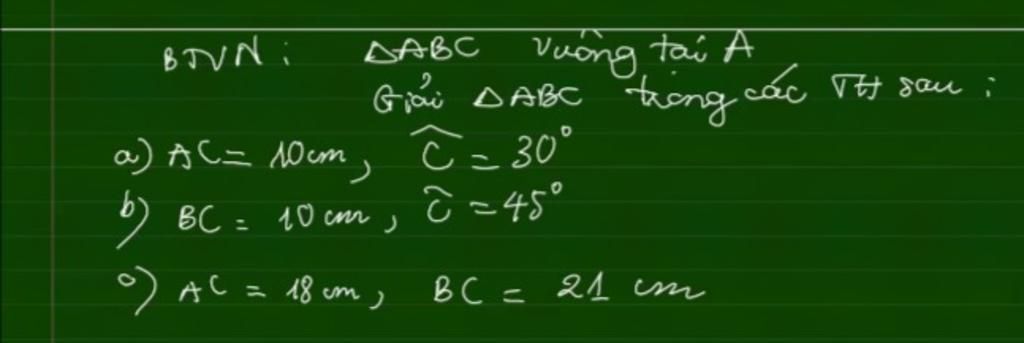 BTVN : ΔABC vuông tại A
Giải ΔABC trong các TH sau :
a) AC = 10cm, Ĉ = 30°
b) BC = 10 cm, Ĉ = 45°
c) AC = 18 cm, BC = 21 cm